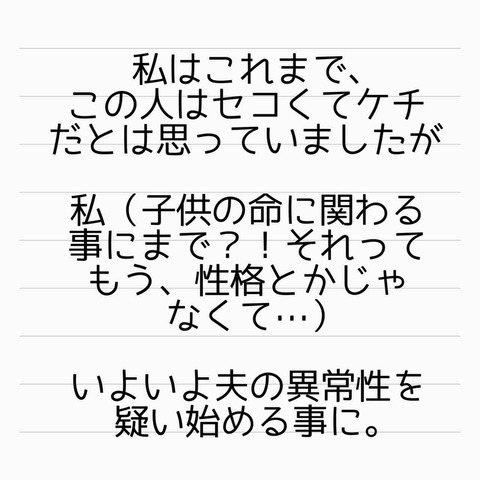 私はこれまで、
この人はセコくてケチ
だとは思っていましたが
私（子供の命に関わる
事にまで？！それって
もう、性格とかじゃ
なくて…）
いよいよ夫の異常性を
疑い始める事に。